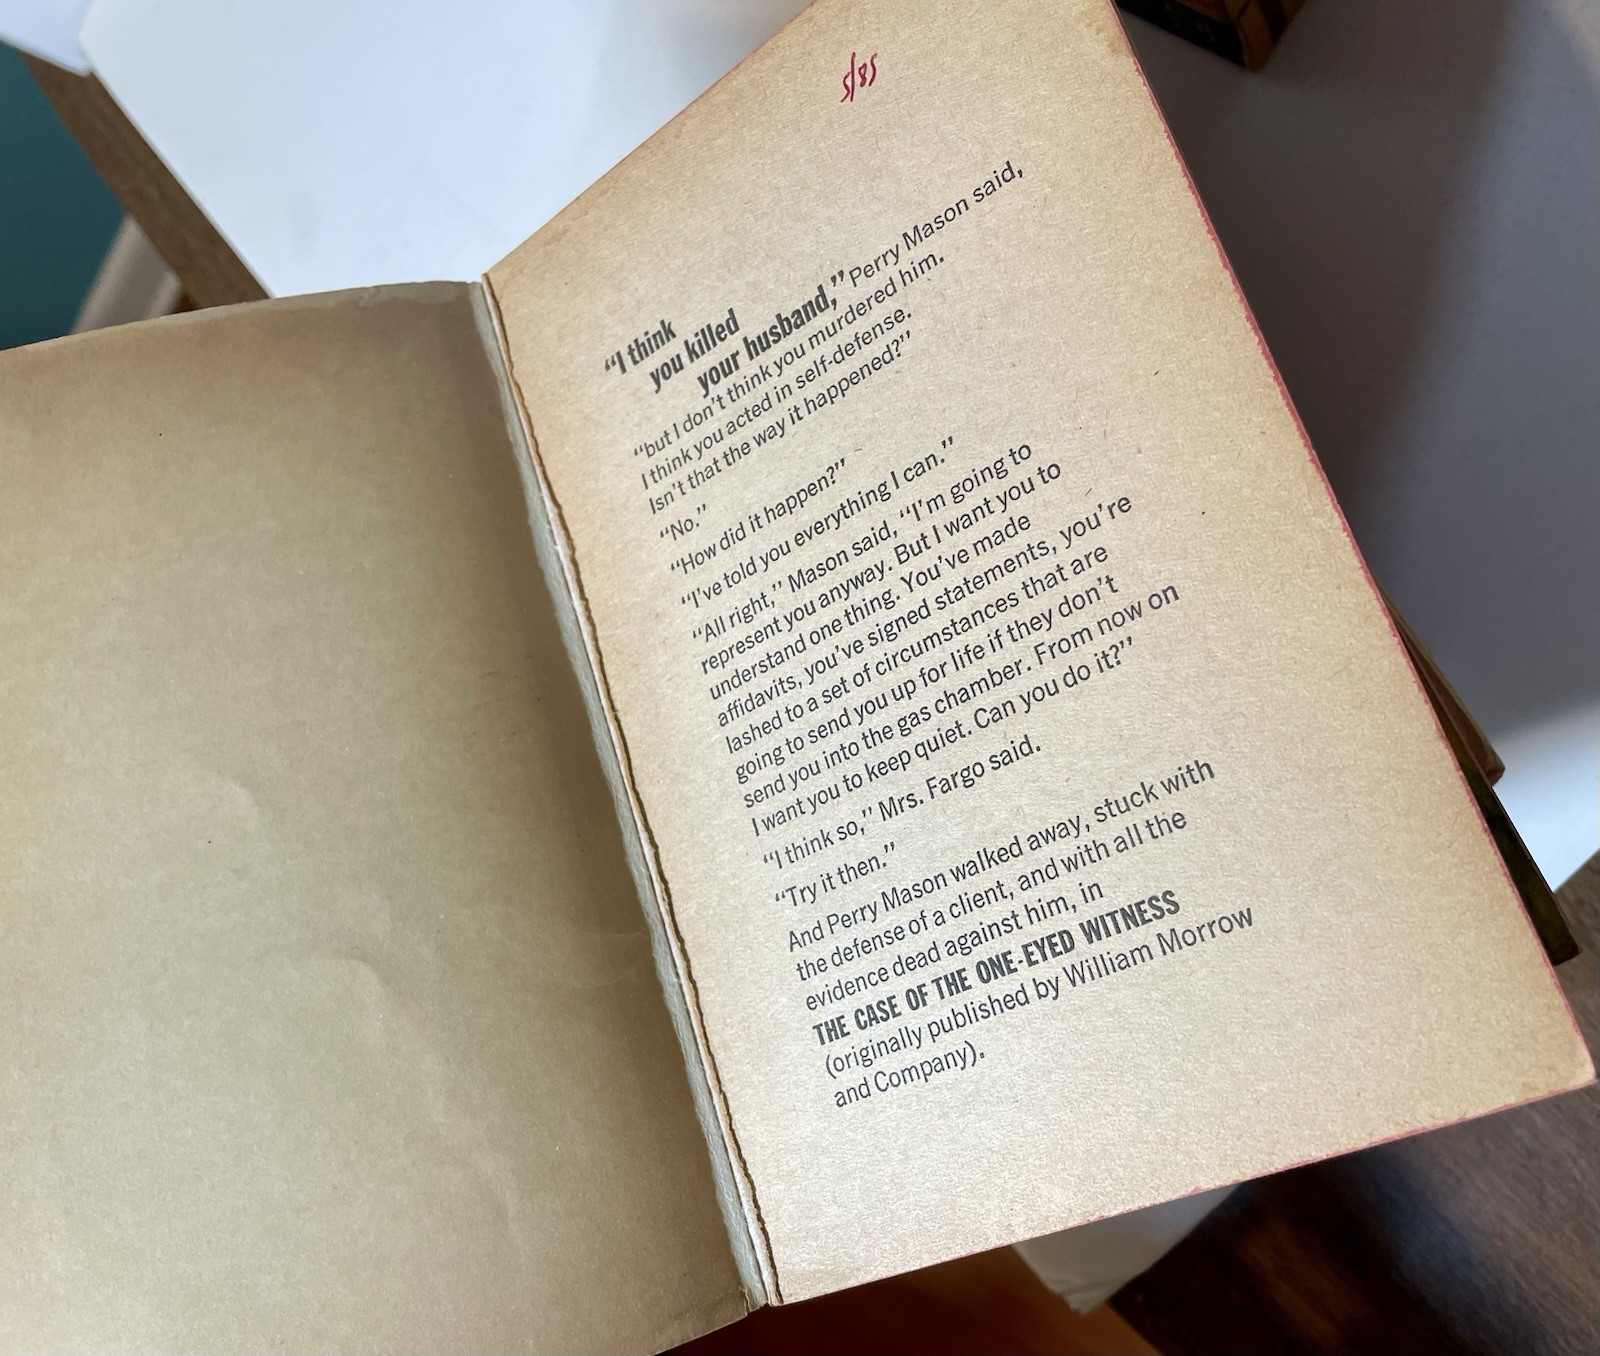 5/85
“I think
you killed
your husband,” Perry Mason said,
“but I don’t think you murdered him.
I think you acted in self-defense.
Isn’t that the way it happened?”
“No.”
“How did it happen?”
“I’ve told you everything I can.”
“All right,” Mason said, “I’m going to
represent you anyway. But I want you to
understand one thing. You’ve made
affidavits, you’ve signed statements, you’re
lashed to a set of circumstances that are
going to send you up for life if they don’t
send you into the gas chamber. From now on
I want you to keep quiet. Can you do it?”
“I think so,” Mrs. Fargo said.
“Try it then.”
And Perry Mason walked away, stuck with
the defense of a client, and with all the
evidence dead against him, in
THE CASE OF THE ONE-EYED WITNESS
(originally published by William Morrow
and Company).